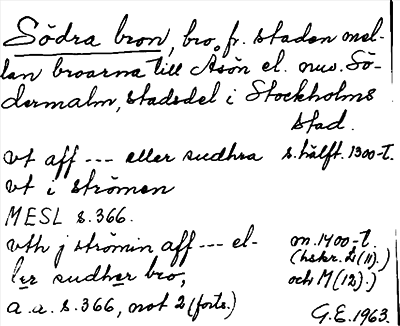 Södra bron, bro fr. staden mel-
lan broarna till Åsön el. nuv. Sö-
dermalm, stadsdel i Stockholms
stad.
vt aff --- eller sudhra s. hälft. 1300-t.
vt i strömen
MESL s. 366.
vth j strömin aff --- el- m. 1400-t.
(hskr. L(11).)
ler sudher bro, och M(12).)
a.a. s. 366, not 2 (forts.)
G.E. 1963.